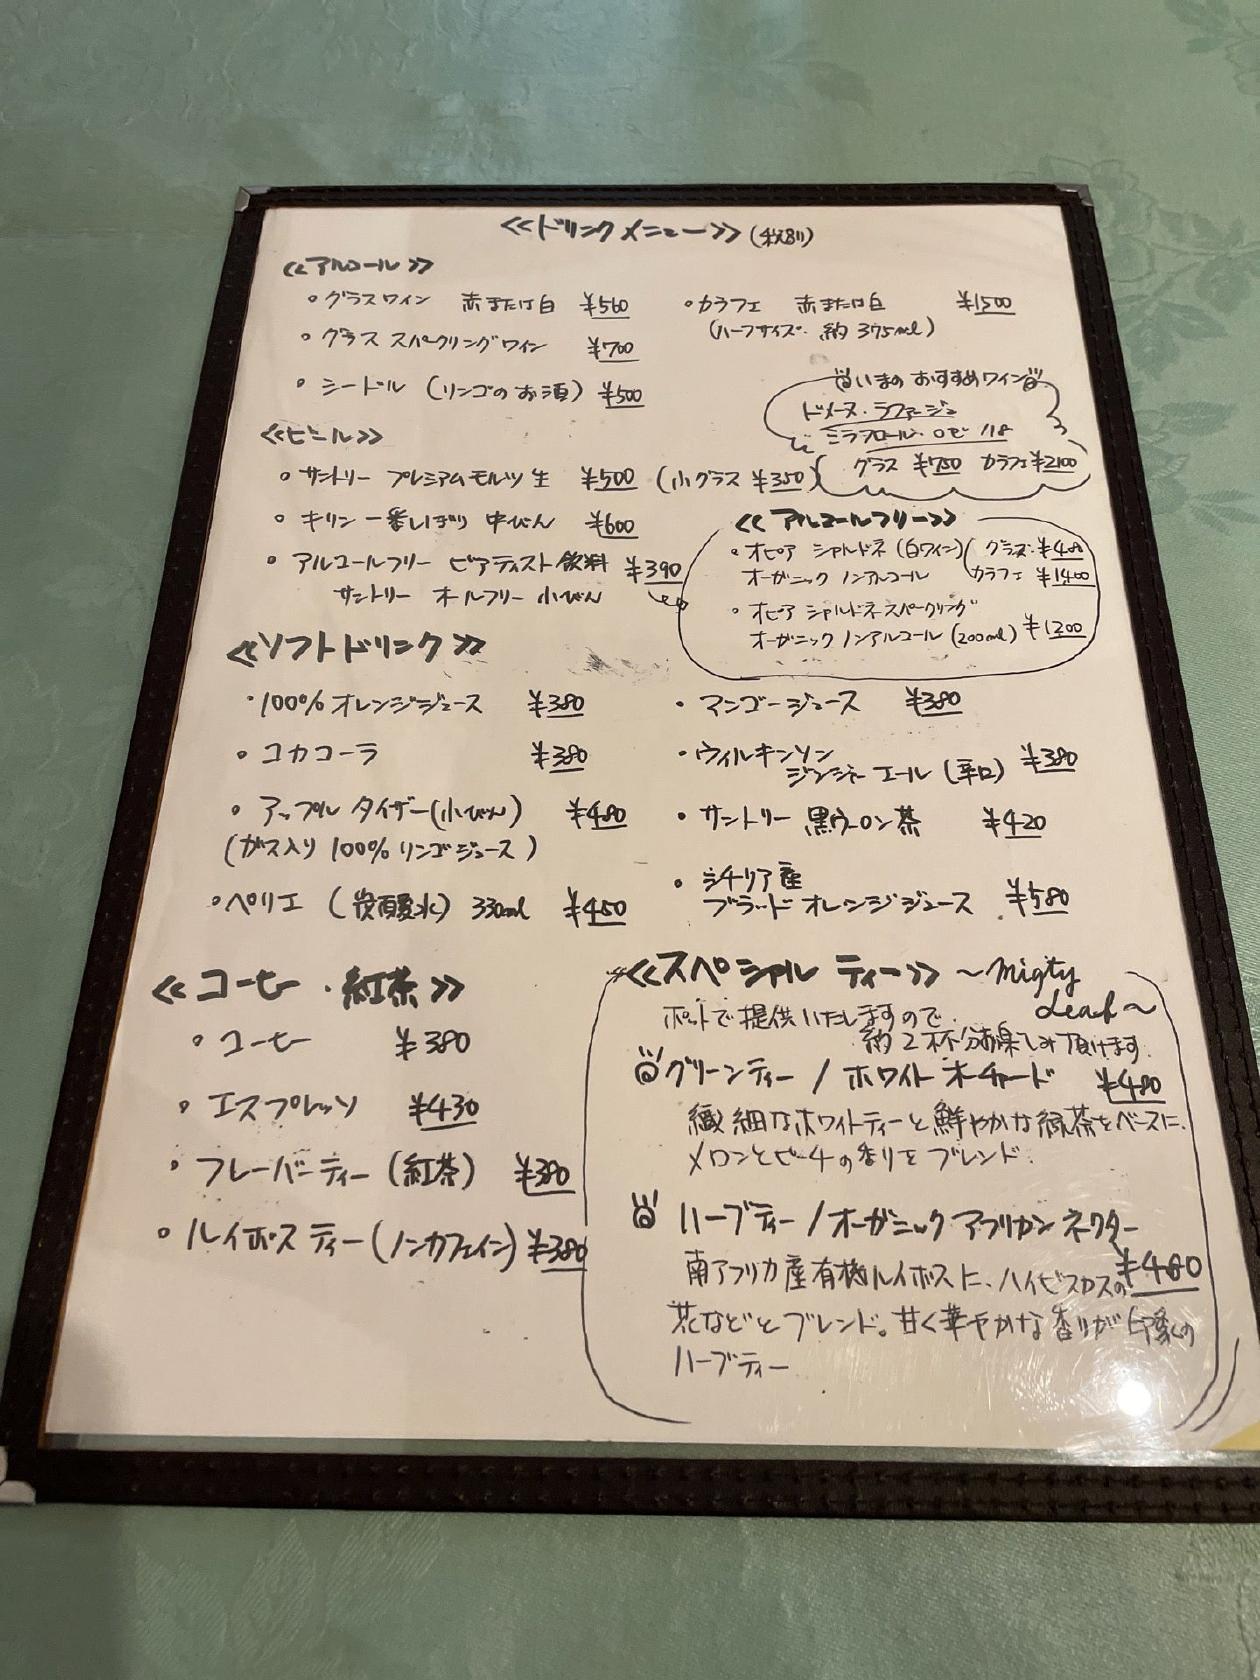 ≪ドリンクメニュー≫(税別)
≪アルコール≫
・グラスワイン 赤または白 ¥560
・グラス スパークリングワイン ¥700
・シードル (リンゴのお酒) ¥500
・カラフェ 赤または白 ¥1500
(ハーフサイズ 約375ml)
いまの おすすめワイン
ドメーヌ・ラファージュ
ミラフロール・ロゼ '18
グラス ¥750 カラフェ ¥2100
≪ビール≫
・サントリー プレミアムモルツ生 ¥500 (小グラス ¥350)
・キリン 一番しぼり 中びん ¥600
・アルコールフリー ビアテイスト飲料 ¥390
サントリー オールフリー 小びん
≪アルコールフリー≫
・オピア シャルドネ (白ワイン) (グラス ¥480
オーガニック ノンアルコール カラフェ ¥1400
・オピア シャルドネスパークリング
オーガニック ノンアルコール (200ml) ¥1300
≪ソフトドリンク≫
・100%オレンジジュース ¥380
・コカコーラ ¥380
・アップルタイザー(小びん) ¥480
(ガス入り 100%リンゴジュース)
・ペリエ (炭酸水) 330ml ¥450
・マンゴージュース ¥380
・ウィルキンソン
ジンジャーエール (辛口) ¥380
・サントリー 黒ウーロン茶 ¥420
・シチリア産
ブラッドオレンジジュース ¥580
≪コーヒー・紅茶≫
・コーヒー ¥380
・エスプレッソ ¥430
・フレーバーティー (紅茶) ¥380
・ルイボスティー(ノンカフェイン) ¥380
≪スペシャル ティー≫ ~migty
leaf~
ポットで提供いたしますので、
約2杯分お楽しみ頂けます。
グリーンティー / ホワイトオーチャード ¥480
繊細なホワイトティーと鮮やかな緑茶をベースに、
メロンとピーチの香りをブレンド。
ハーブティー / オーガニック アフリカン ネクター
¥480
南アフリカ産有機ルイボスに、ハイビスカスの
花などとブレンド。甘く華やかな香りが印象の
ハーブティー